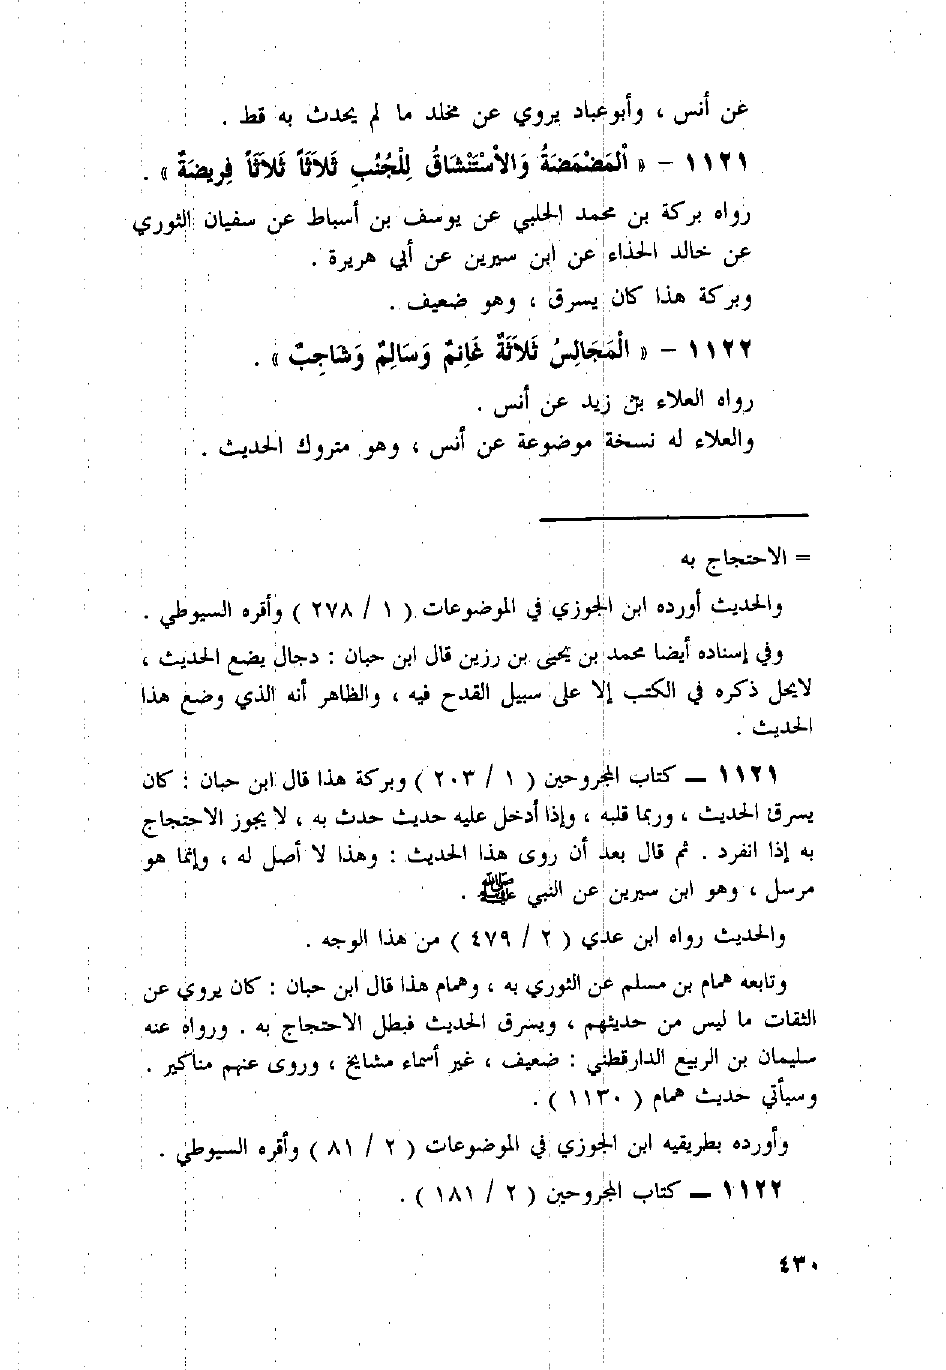 عن أنس ، وأبوعباد يروي عن مخلد ما لم يحدث به قط .
١١٢١ – « ٱلمَضْمَضَةُ وَالاْسْتَنْشَاقُ لِلْجُنُبِ ثَلاَثَاً ثَلاَثَاً فِريضَةٌ » .
رواه بركة بن محمد الحلبي عن يوسف بن أسباط عن سفيان الثوري
عن خالد الحذاء عن ابن سيرين عن أبي هريرة .
وبركة هذا كان يسرق ، وهو ضعيف .
١١٢٢ – « الْمَجَالِسُ ثَلاَثَةٌ غَانِمٌ وَسَالِمٌ وَشَاجِبٌ » .
رواه العلاء بن زيد عن أنس .
والعلاء له نسخة موضوعة عن أنس ، وهو متروك الحديث .
= الاحتجاج به
والحديث أورده ابن الجوزي في الموضوعات ( ١ / ٢٧٨ ) وأقره السيوطي .
وفي إسناده أيضا محمد بن يحيى بن رزين قال ابن حبان : دجال يضع الحديث ،
لايحل ذكره في الكتب إلا على سبيل القدح فيه ، والظاهر أنه الذي وضع هذا
الحديث .
١١٢١ – كتاب المجروحين ( ١ / ٢٠٣ ) وبركة هذا قال ابن حبان : كان
يسرق الحديث ، وربما قلبه ، وإذا أدخل عليه حديث حدث به ، لا يجوز الاحتجاج
به إذا انفرد . ثم قال بعد أن روى هذا الحديث : وهذا لا أصل له ، وإنما هو
مرسل ، وهو ابن سيرين عن النبي ﷺ .
والحديث رواه ابن عدي ( ٢ / ٤٧٩ ) من هذا الوجه .
وتابعه همام بن مسلم عن الثوري به ، وهمام هذا قال ابن حبان : كان يروي عن
الثقات ما ليس من حديثهم ، ويسرق الحديث فبطل الاحتجاج به . ورواه عنه
سليمان بن الربيع الدارقطني : ضعيف ، غير أسماء مشايخ ، وروى عنهم مناكير .
وسيأتي حديث همام ( ١١٣٠ ) .
وأورده بطريقيه ابن الجوزي في الموضوعات ( ٢ / ٨١ ) وأقره السيوطي .
١١٢٢ – كتاب المجروحين ( ٢ / ١٨١ ) .
٤٣٠